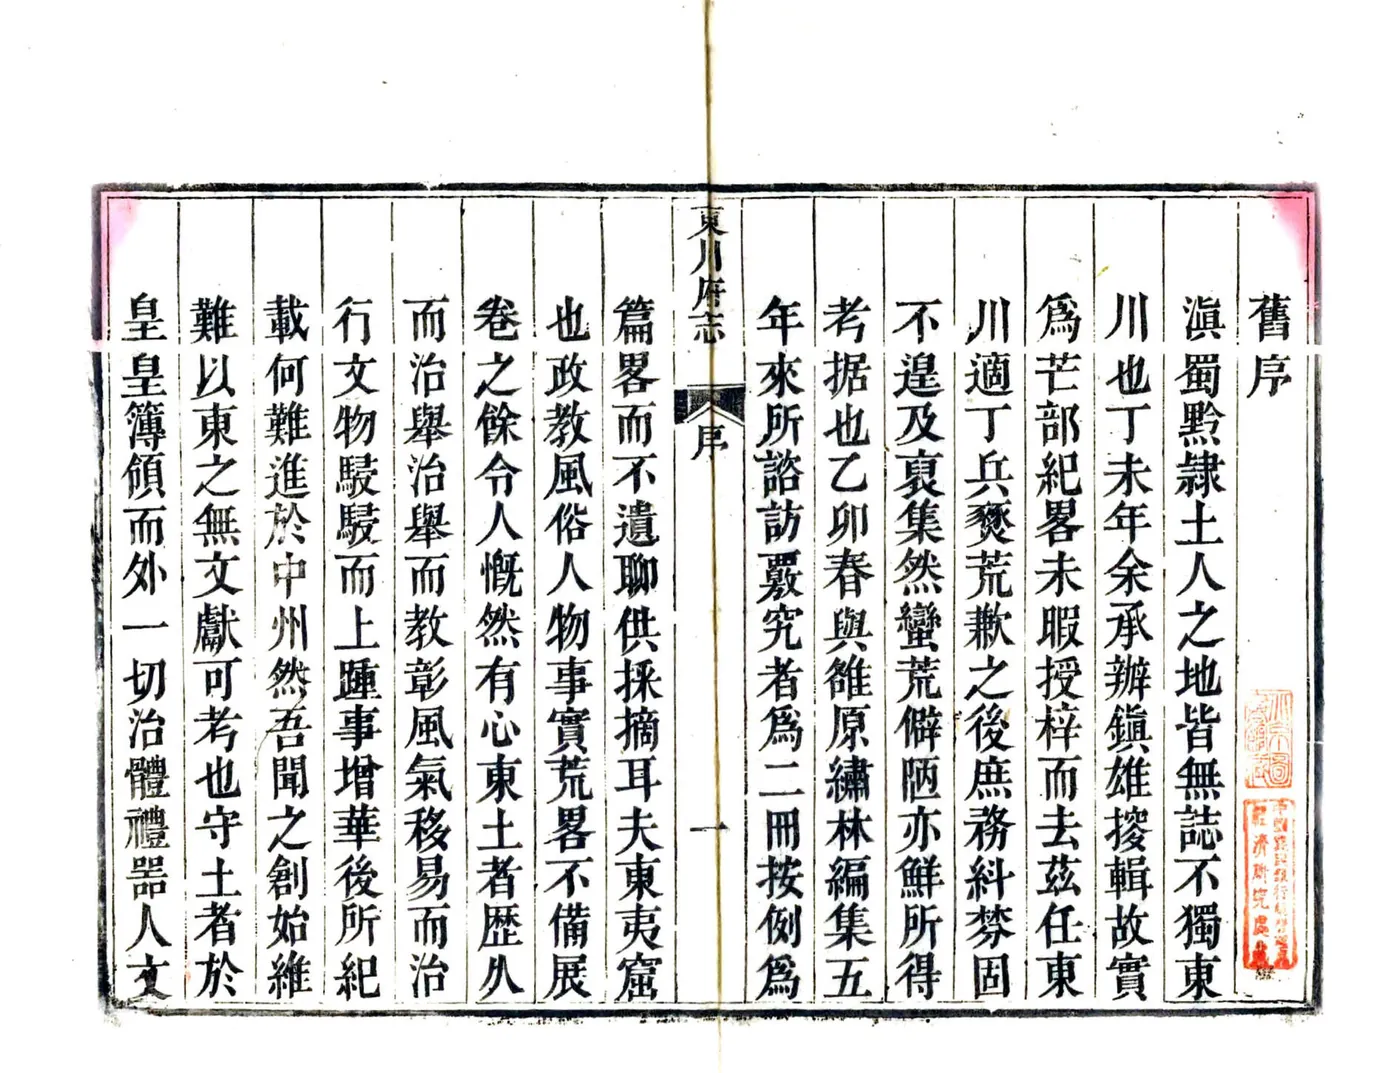 舊序
滇蜀黔隸土人之地皆無誌不獨東
川也丁未年余承辦鎮雄搜輯故實
爲芒部紀畧未暇授梓而去茲任東
川適丁兵燹荒歉之後庶務紏棼固
不遑及裒集然蠻荒僻陋亦鮮所得
考据也乙卯春與雒原繡林編集五
年來所諮訪覈究者爲二冊按例爲
東川府志
序
一
篇畧而不遺聊供採摘耳夫東夷窟
也政教風俗人物事實荒畧不備展
卷之餘令人慨然有心東土者歷久
而治舉治舉而教彰風氣移易而治
行文物駸駸而上踵事增華後所紀
載何難進於中州然吾聞之創始維
難以東之無文獻可考也守土者於
皇皇簿領而外一切治體禮器人文